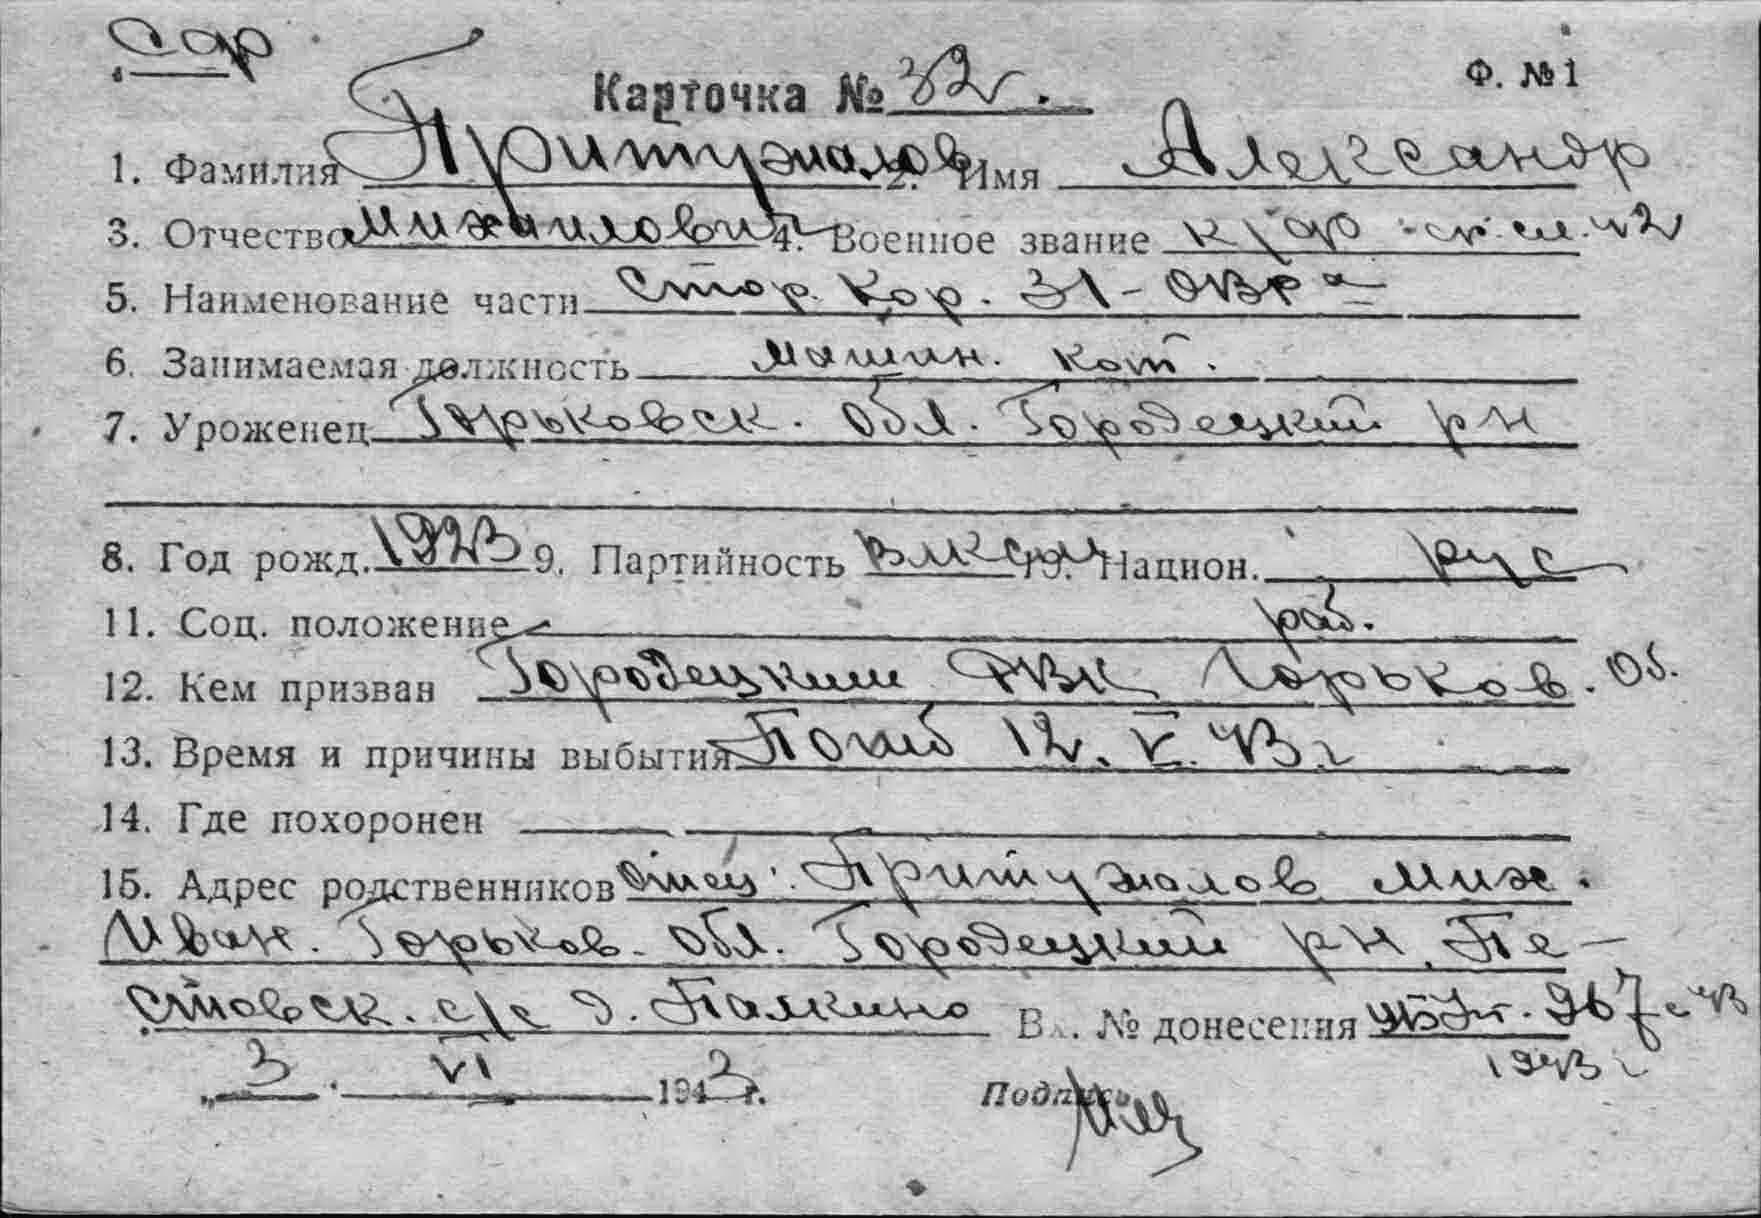 сф
Карточка № 32
Ф. №1
1. Фамилия Притужалов 2. Имя Александр
3. Отчество Михаилович 4. Военное звание к/ф ст. сл. 42
5. Наименование части Стор. Кор. 31-ОВРа
6. Занимаемая должность машин. кот.
7. Уроженец Горьковск. Обл. Городецкий рн
8. Год рожд. 1923 9. Партийность ВЛКСМ 10. Национ. рус
11. Соц. положение раб.
12. Кем призван Городецким РВК Горьков. Об.
13. Время и причины выбытия Погиб 12. V. 43 г
14. Где похоронен
15. Адрес родственников Отец. Притужалов Мих.
Иван. Горьков. Обл. Городецкий рн. Пе-
стовск. с/с д. Палкино В . № донесения 967с 43
1943 г
„ 3 . VI 1943 г. Подпись